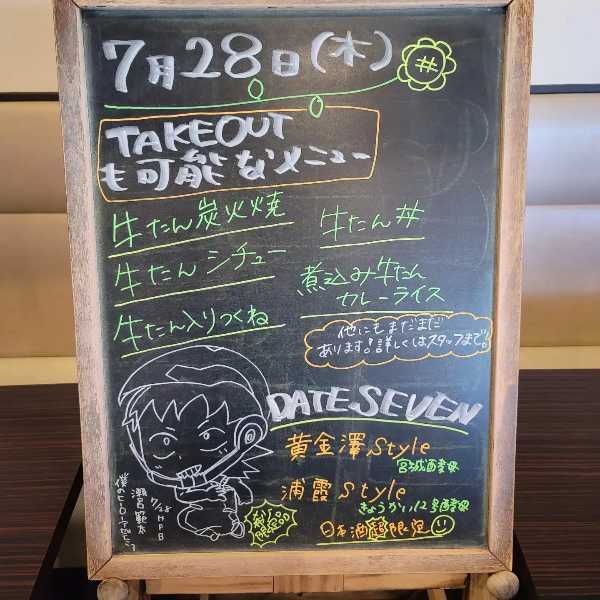 7月28日(木)
#
TAKEOUT
も可能なメニュー
牛たん炭火焼
牛たん丼
牛たんシチュー
煮込み牛たん
カレーライス
牛たん入りつくね
他にもまだまだ
あります!詳しくはスタッフまで。
DATE SEVEN
黄金澤Style
宮城酵母
浦霞Style
きょうかい12号酵母
日本酒 限定
瀬呂範太
7/28 HPB
僕のヒーローアカデミア